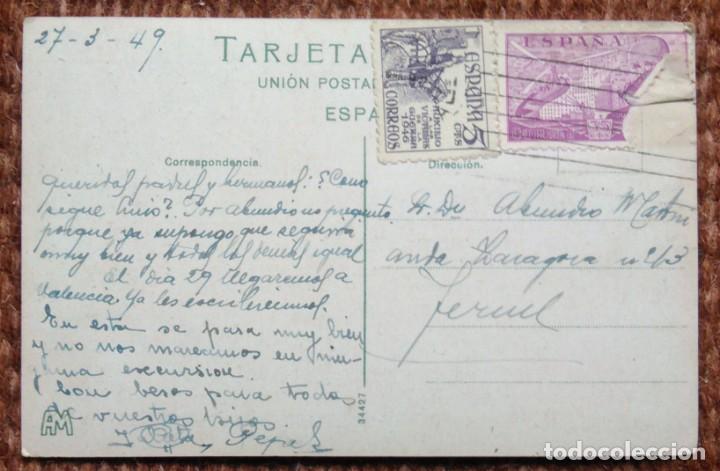 27-3-49.
TARJETA
UNIÓN POSTA
ESPA
ESPAÑA
CORREOS
5 CTS
1946
ESPAÑA
Correspondencia.
Dirección.
Queridos padres y hermanos: ¿Como
sigue Luis? Por Abundio no pregunto
porque ya supongo que seguira
muy bien y todos los demas igual
El dia 29 llegaremos a
Valencia ya les escribiremos.
En esta se pasa muy bien
y no nos mareamos en nin-
guna excursion.
Con besos para todos
de vuestros hijos
y Pepe
S. Dn Abundio Martin
Zaragoza nº 13
Teruel
34427
AM
todocoleccion.net